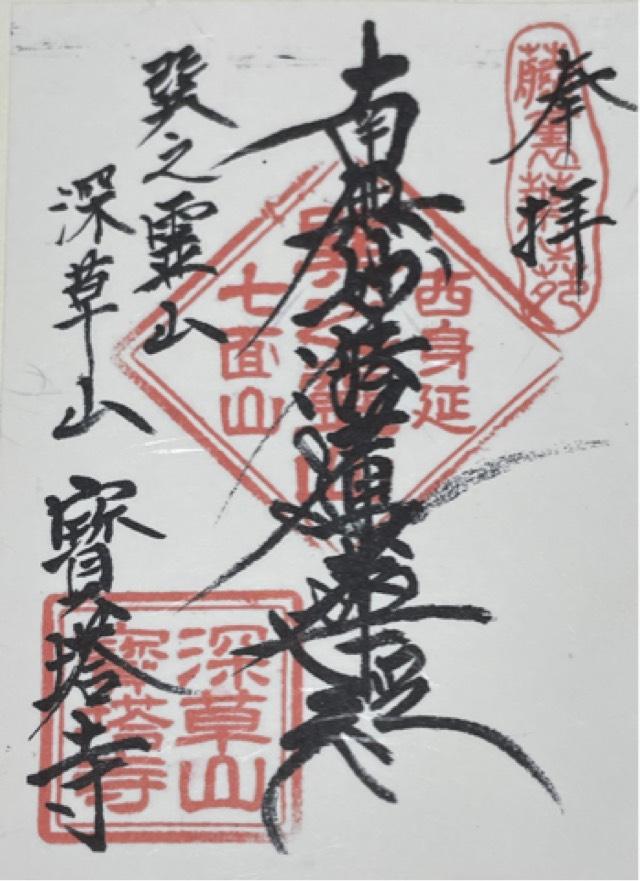 奉拝
南無妙法蓮華経
巽之霊山
深草山
寶塔寺
西身延
巽之靈山
七面山
深草山
寶塔寺